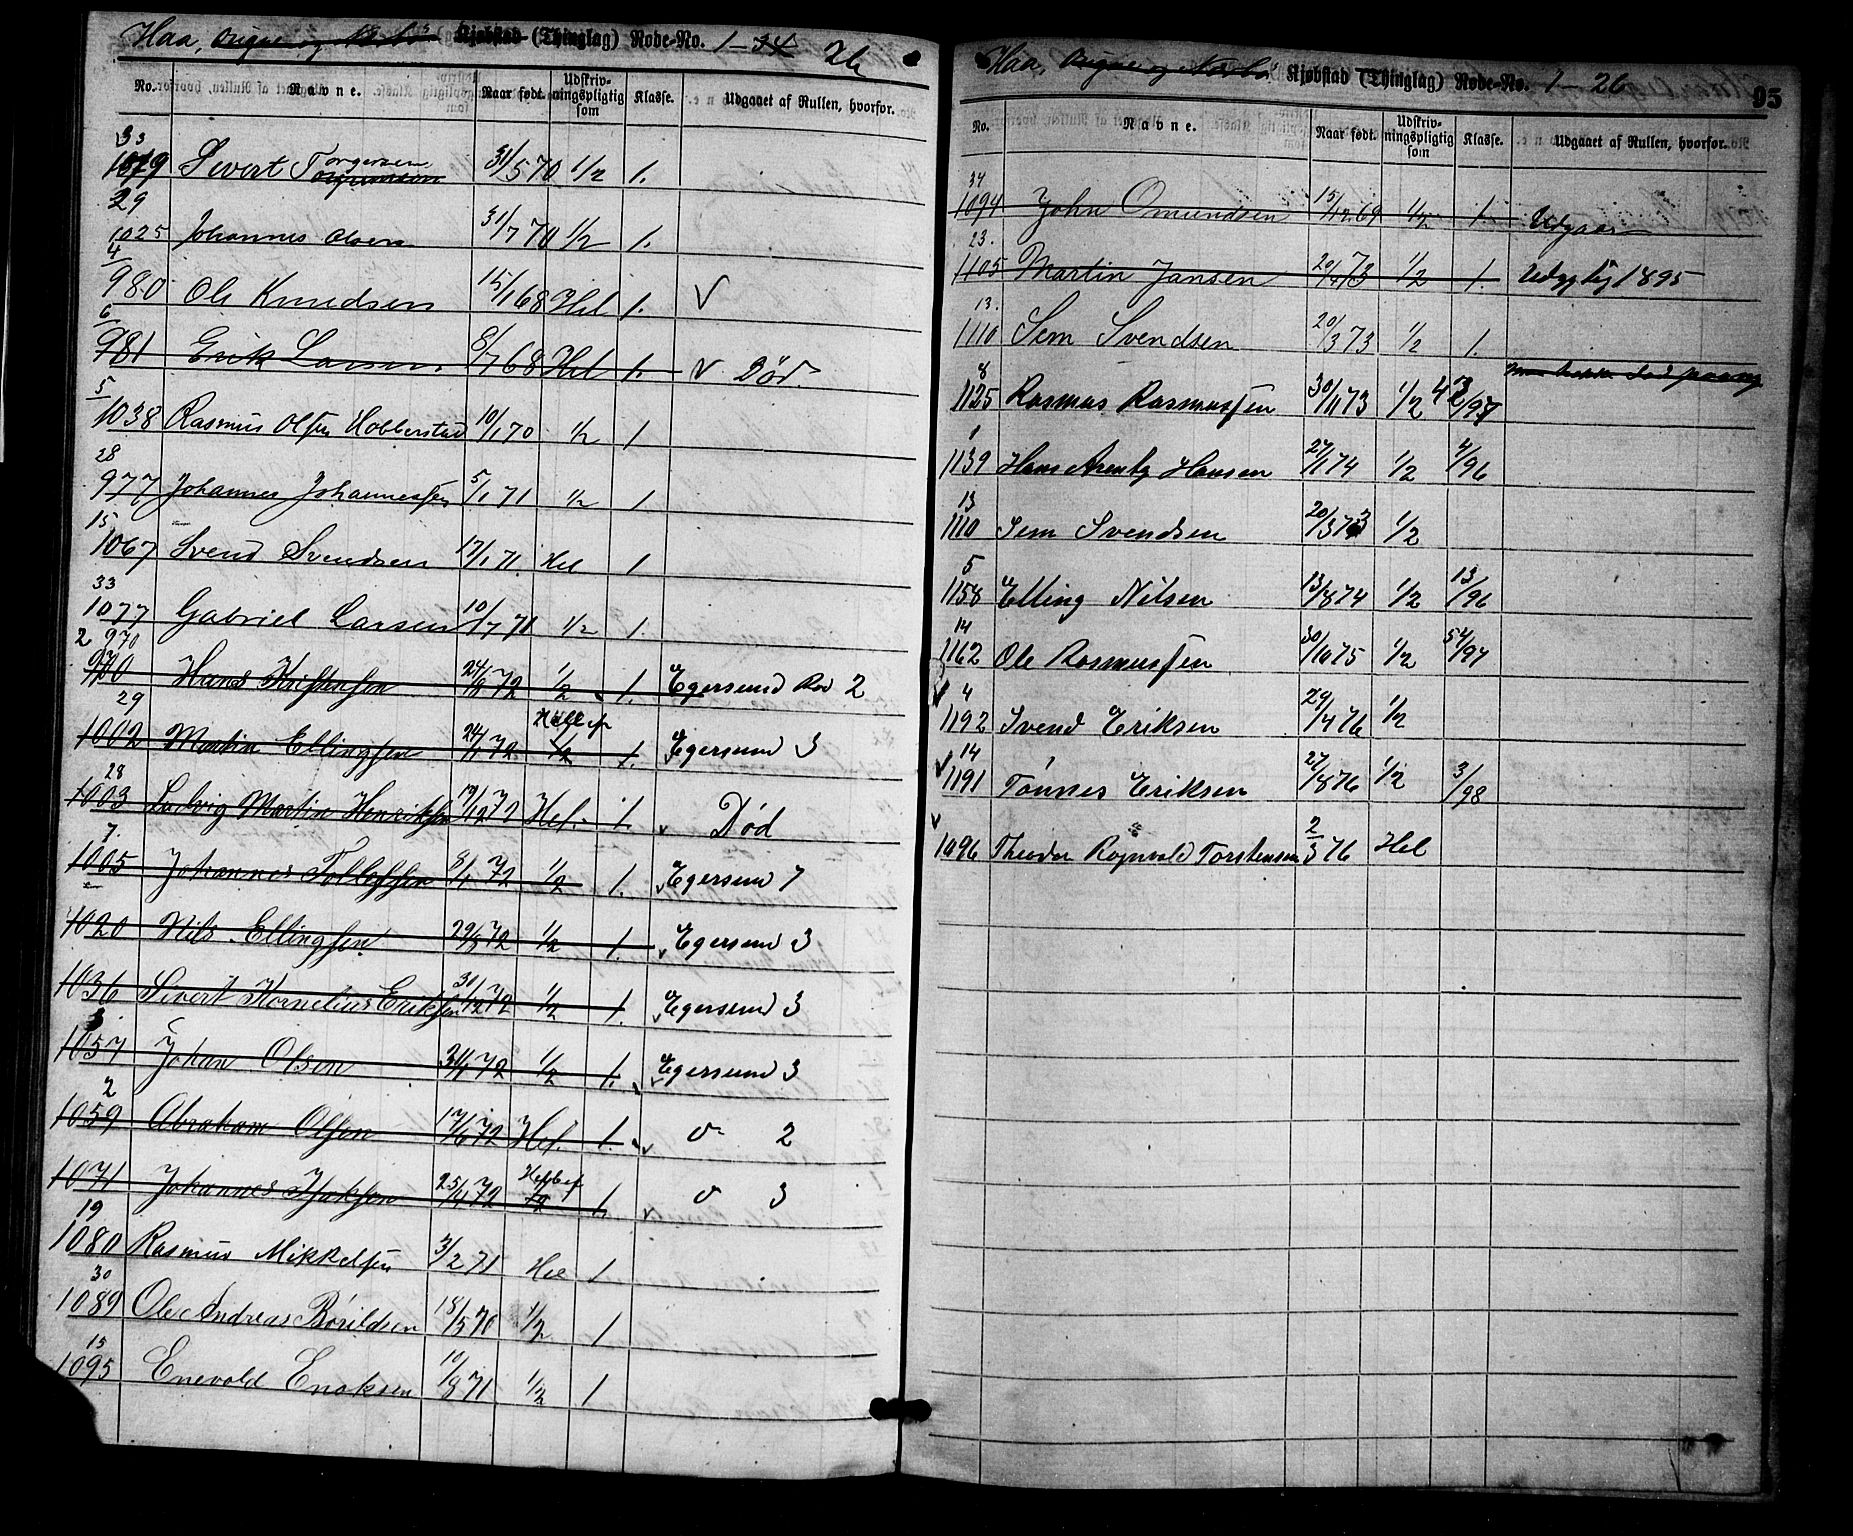 Haa, Ougne og Nærbö Kjøbstad (Thinglag) Rode-No. 1-34 26
No. Navne. Naar født. Udskrivningspligtig som Klasse. Udgaaet af Rullen, hvorfor.
33
1079 Sivert Torgersen 31/5 70 1/2 1.
29
1025 Johannes Olsen 31/7 70 1/2 1.
4
980 Ole Knudsen 15/1 68 Hel 1. V
6
981 Erik Larsen 8/7 68 Hel 1. V Död.
5
1038 Rasmus Olsen Hobberstad 10/1 70 1/2 1
28
977 Johannes Johannessen 5/1 71 1/2 1
15
1067 Svend Svendsen 17/1 71. Hel 1
33
1077 Gabriel Larsen 10/7 71 1/2 1.
2 970
Hans Kristensen 24/8 72 1/2 1. Egersund Rod 2
29
1002 Martin Ellingsen 24/1 72 1/2 1. Egersund 3
28
1003 Ludvig Martin Henriksen 19/12 72 Hel. 1 Død
7.
1005 Johannes Tollefsen 8/1 72 1/2 1. Egersund 7
1020 Nils Ellingsen 29/8 72 1/2 1. Egersund 3
1036 Sivert Kornelius Eriksen 30/12 72 1/2 1. Egersund 3
1057 Johan Olsen 31/1 72 1/2 1. Egersund 3
2
1059 Abraham Olsen 17/6 72 Hel. 1. 2
1071 Johannes Isaksen 25/4 72 1/2 1. 3
19
1080 Rasmus Mikkelsen 3/2 71 Hel 1
30
1089 Ole Andreas Börildsen 18/5 70 1/2 1
15
1095 Enevold Enoksen 10/8 71 1/2 1
Haa, Ougne og Nærbö Kjøbstad (Thinglag) Rode-No. 1-26
95
No. Navne. Naar født. Udskrivningspligtig som Klasse. Udgaaet af Rullen, hvorfor.
34
1094 John Omundsen 15/12 69 1/2 1. Udgaar
23.
1105 Martin Jansen 20/4 73 1/2 1. 1895
13.
1110 Sem Svendsen 20/3 73 1/2 1.
8
1125 Rasmus Rasmussen 30/11 73 1/2 42/97
1
1139 Hans Arentz Hansen 27/1 74 1/2 4/96
13
1110 Sem Svendsen 20/3 73 1/2
5
1158 Elling Nilsen 13/8 74 1/2 13/96
14
1162 Ole Rasmussen 30/10 75 1/2 54/97
4
1192 Svend Eriksen 29/4 76 1/2
14
1191 Tönnes Eriksen 27/8 76 1/2 3/98
1096 Theodor Rognvald Torstensen 2/3 76 Hel